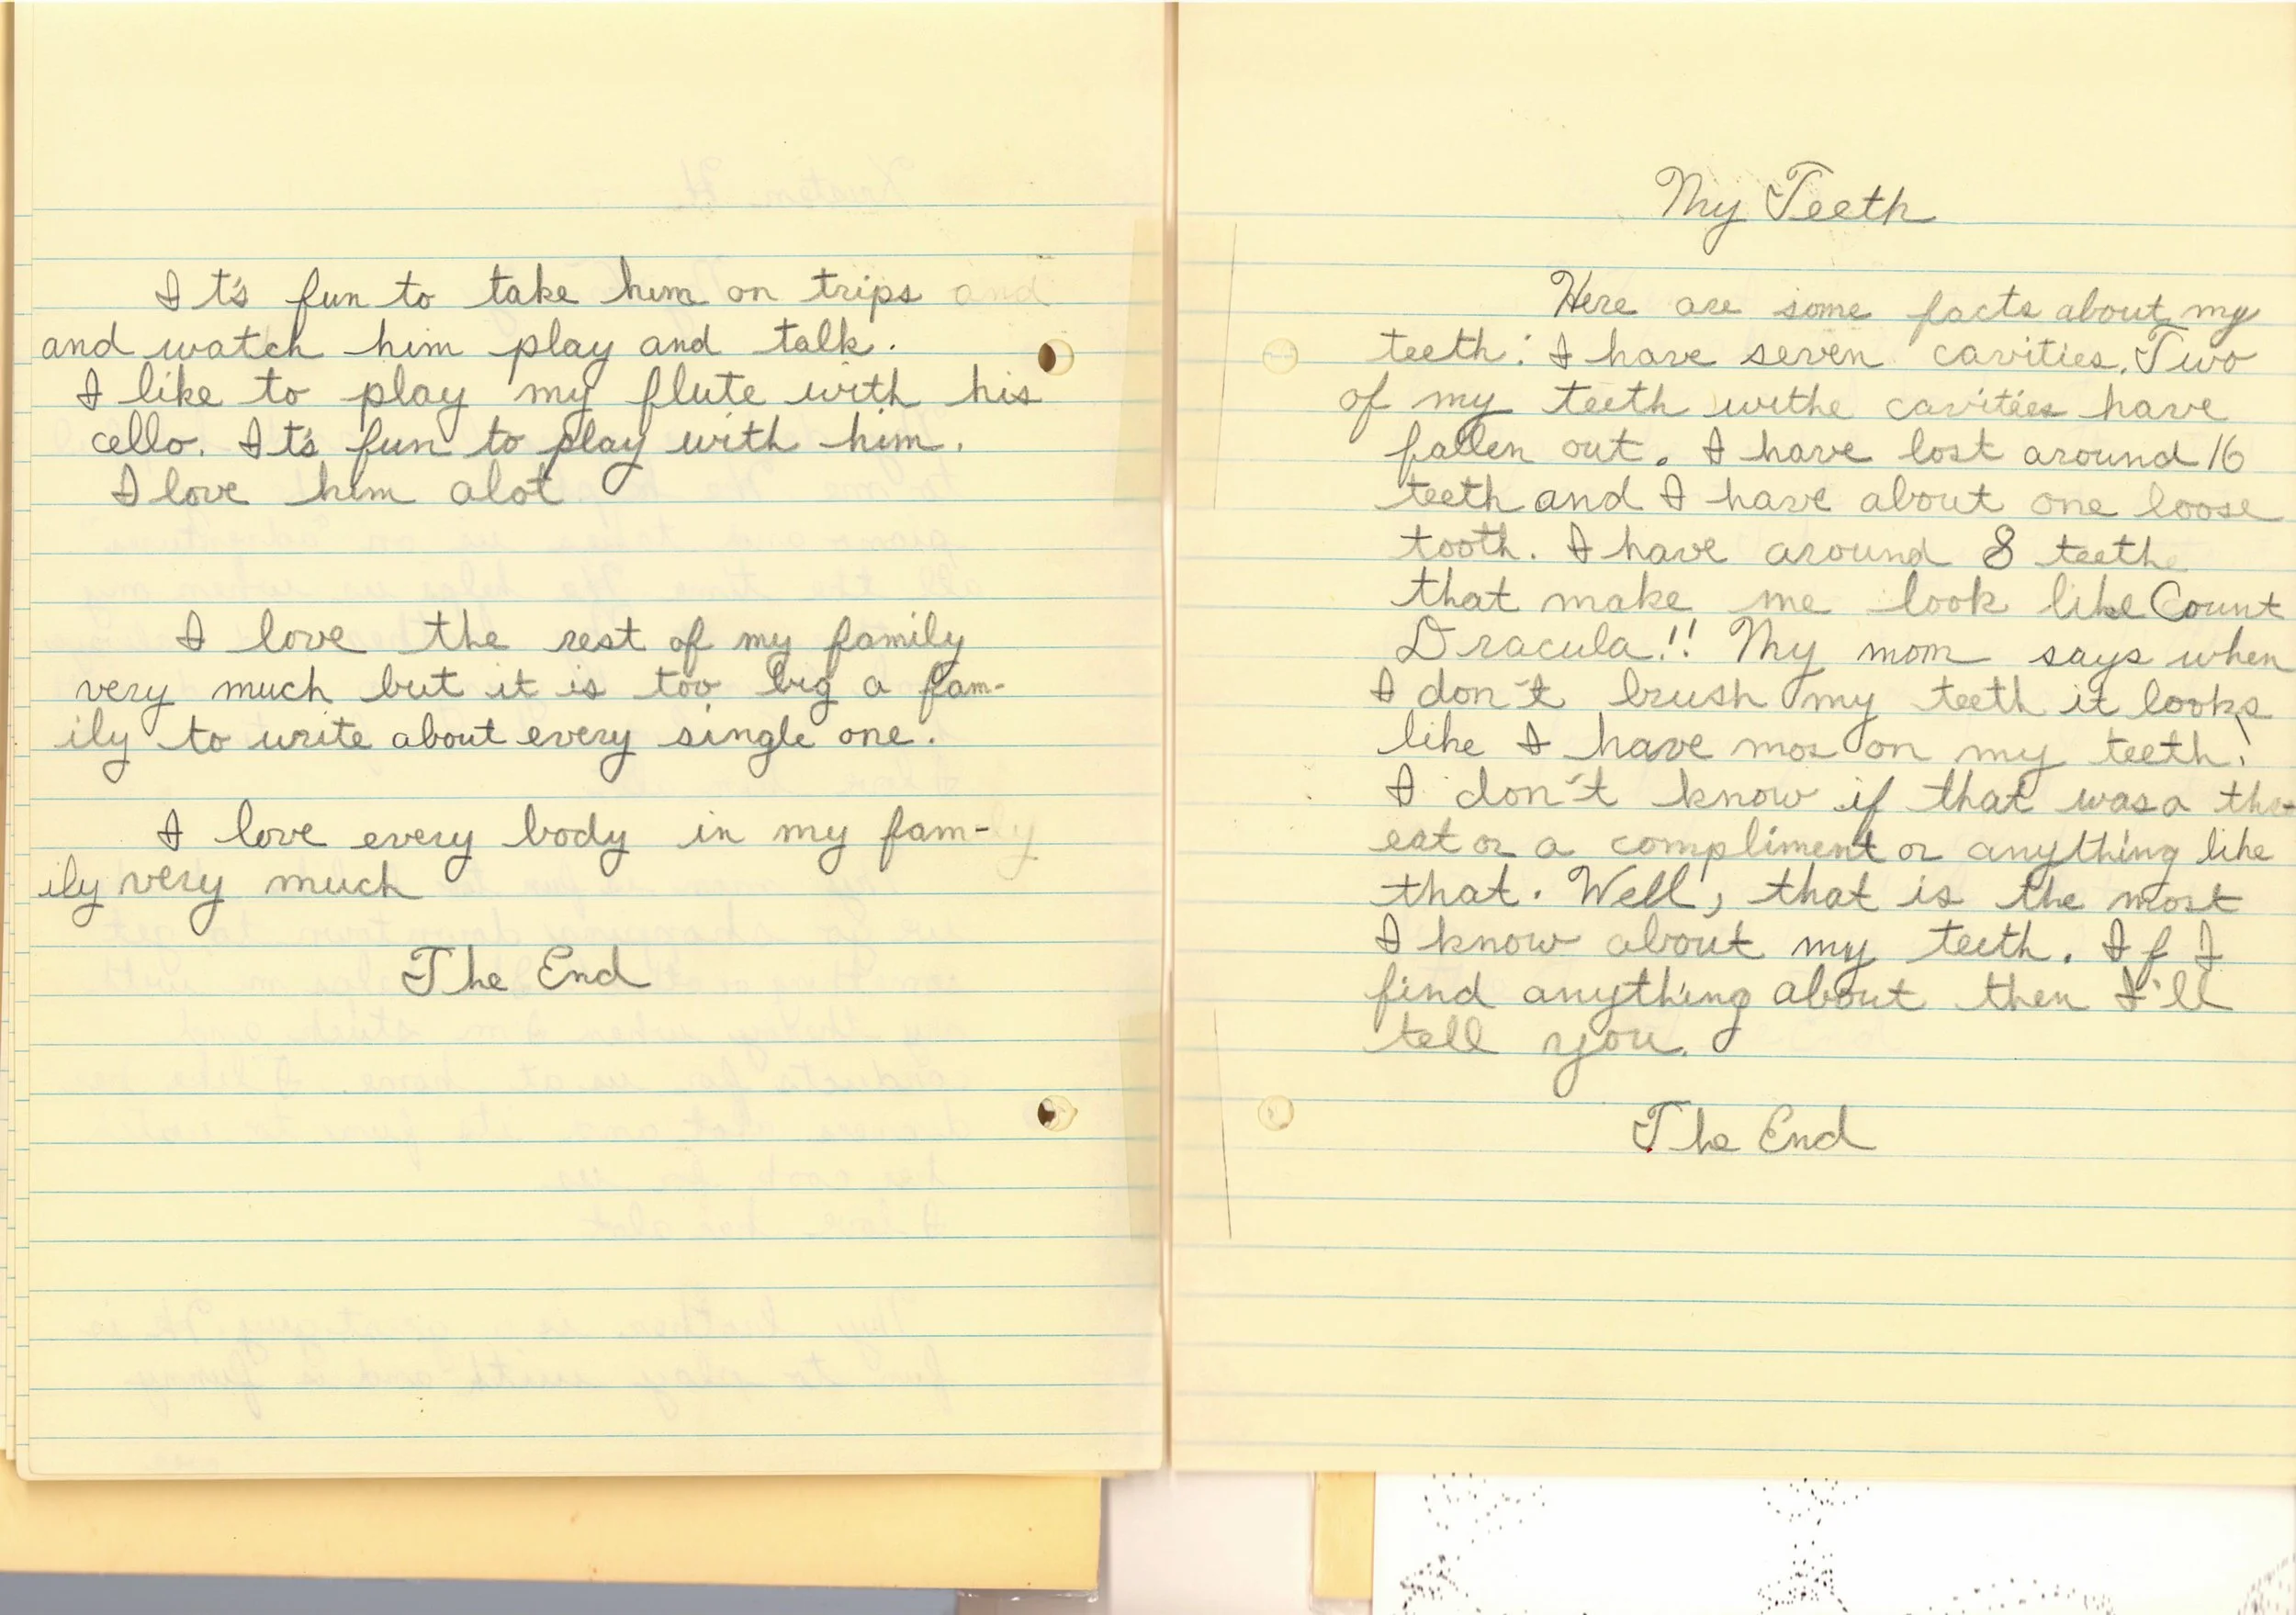 It's fun to take him on trips and
and watch him play and talk.
I like to play my flute with his
cello. It's fun to play with him.
I love him alot
I love the rest of my family
very much but it is too big a fam-
ily to write about every single one.
I love every body in my fam-ly
ily very much
The End
My Teeth
Here are some facts about my
teeth: I have seven cavities. Two
of my teeth withe cavities have
fallen out. I have lost around 16
teeth and I have about one loose
tooth. I have around 8 teethe
that make me look like Count
Dracula!! My mom says when
I don't brush my teeth it looks
like I have mos on my teeth!
I don't know if that was a thr-
eat or a compliment or anything like
that. Well, that is the most
I know about my teeth. If I
find anything about then I'll
tell you.
The End